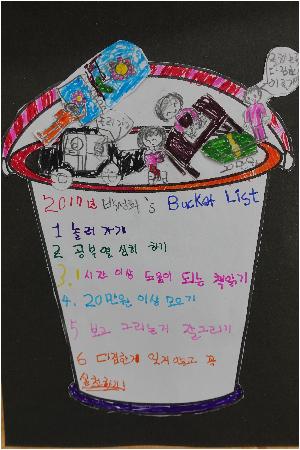 다짐한
2017년 박성희's Bucket List
1 놀러 가기
2 공부 열심히 하기
3. 1시간 이상 도움이 되는 책읽기
4. 20만원 이상 모으기
5 보고 그리는거 잘그리기
6 다짐한게 잊지 않고 꼭
실천하기!